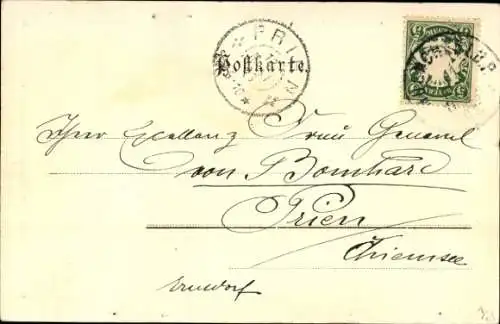 PRIEN
Postkarte.
Ihrer Exellenz Frau General
von Bomhard
Prien
Chiemsee